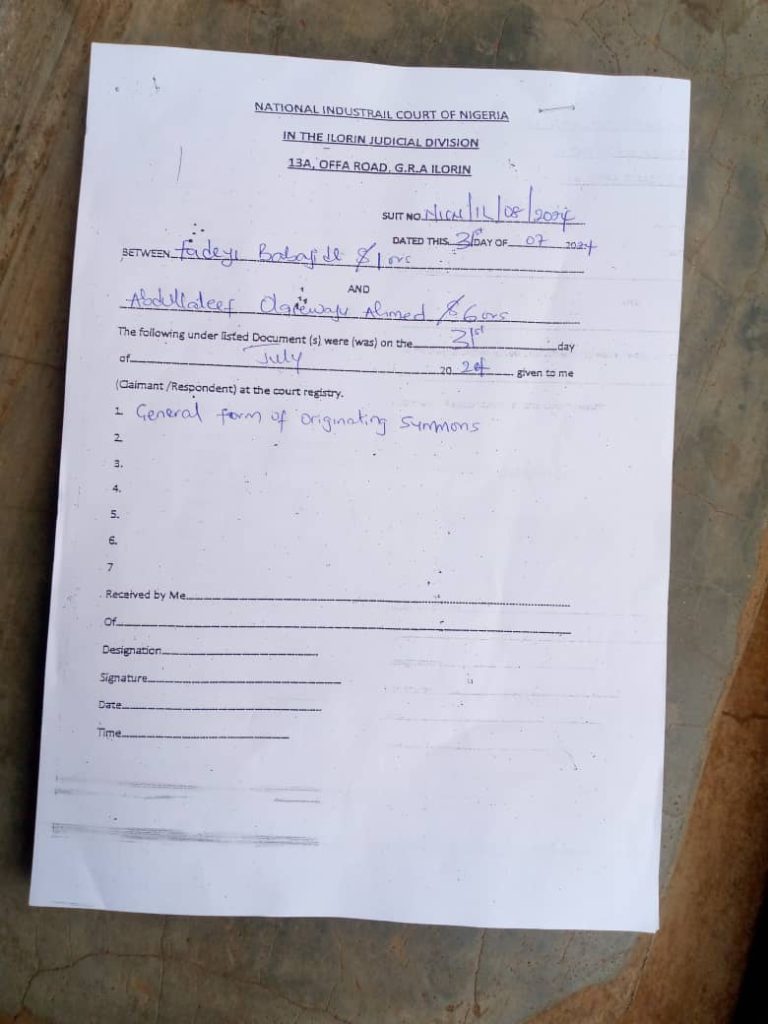 NATIONAL INDUSTRAIL COURT OF NIGERIA
IN THE ILORIN JUDICIAL DIVISION
13A, OFFA ROAD, G.R.A ILORIN
SUIT NO. NICN/IL/08/2024
DATED THIS 31st DAY OF 07 2024
BETWEEN Fadeyi Babajide & 1 ors
AND
Abdullateef Ahmed & 6 ors
The following under listed Document (s) were (was) on the 31st day
of July 20 24 given to me
(Claimant /Respondent) at the court registry.
1. General form of originating Summons
2.
3.
4.
5.
6.
7
Received by Me
Of
Designation
Signature
Date
Time